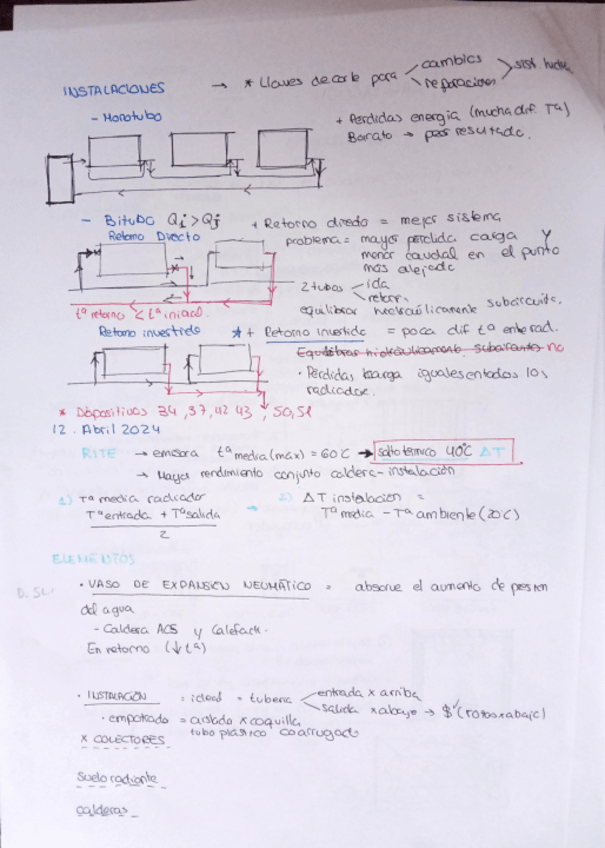 INSTALACIONES → * Llaves de corte para cambios reparaciones > sist. hidr.
- Monotubo
+ Perdidas energia (mucha dif. Tª)
Barato → peor resultado.
- Bitubo Qi > Qj + Retorno directo = mejor sistema
Retorno Directo
problema = mayor perdida carga y
menor caudal en el punto
mas alejado
2 tubos ida
retor.
tª retorno < tª inicial.
equilibrar hidraúlicamente subcircuito.
Retorno invertido * + Retorno invertido = poca dif tª entre rad.
Equilibrar hidraúlicamente subcircuito no
• Perdidas carga iguales en todos los
radiador.
* Dispositivos 34, 37, 42 43, 50, 51
12. Abril 2024
RITE → emisora tª media (max) = 60°C → salto termico 40°C ΔT
→ Mayor rendimiento conjunto caldera - instalación
1) Tª media radiador
Tª entrada + Tª salida
2
→ 2) ΔT instalacion =
Tª media - Tª ambiente (20°C)
ELEMENTOS
• VASO DE EXPANSIÓN NEUMÁTICO = absorve el aumento de presion
del agua
- Caldera ACS y Calefacc.
En retorno (↓ tª)
• INSTALACIÓN = ideal = tuberia entrada x arriba
salida x abajo →
• empotrado = aislado x coquilla
tubo plástico coarrugado
* COLECTORES
Suelo radiante
calderas